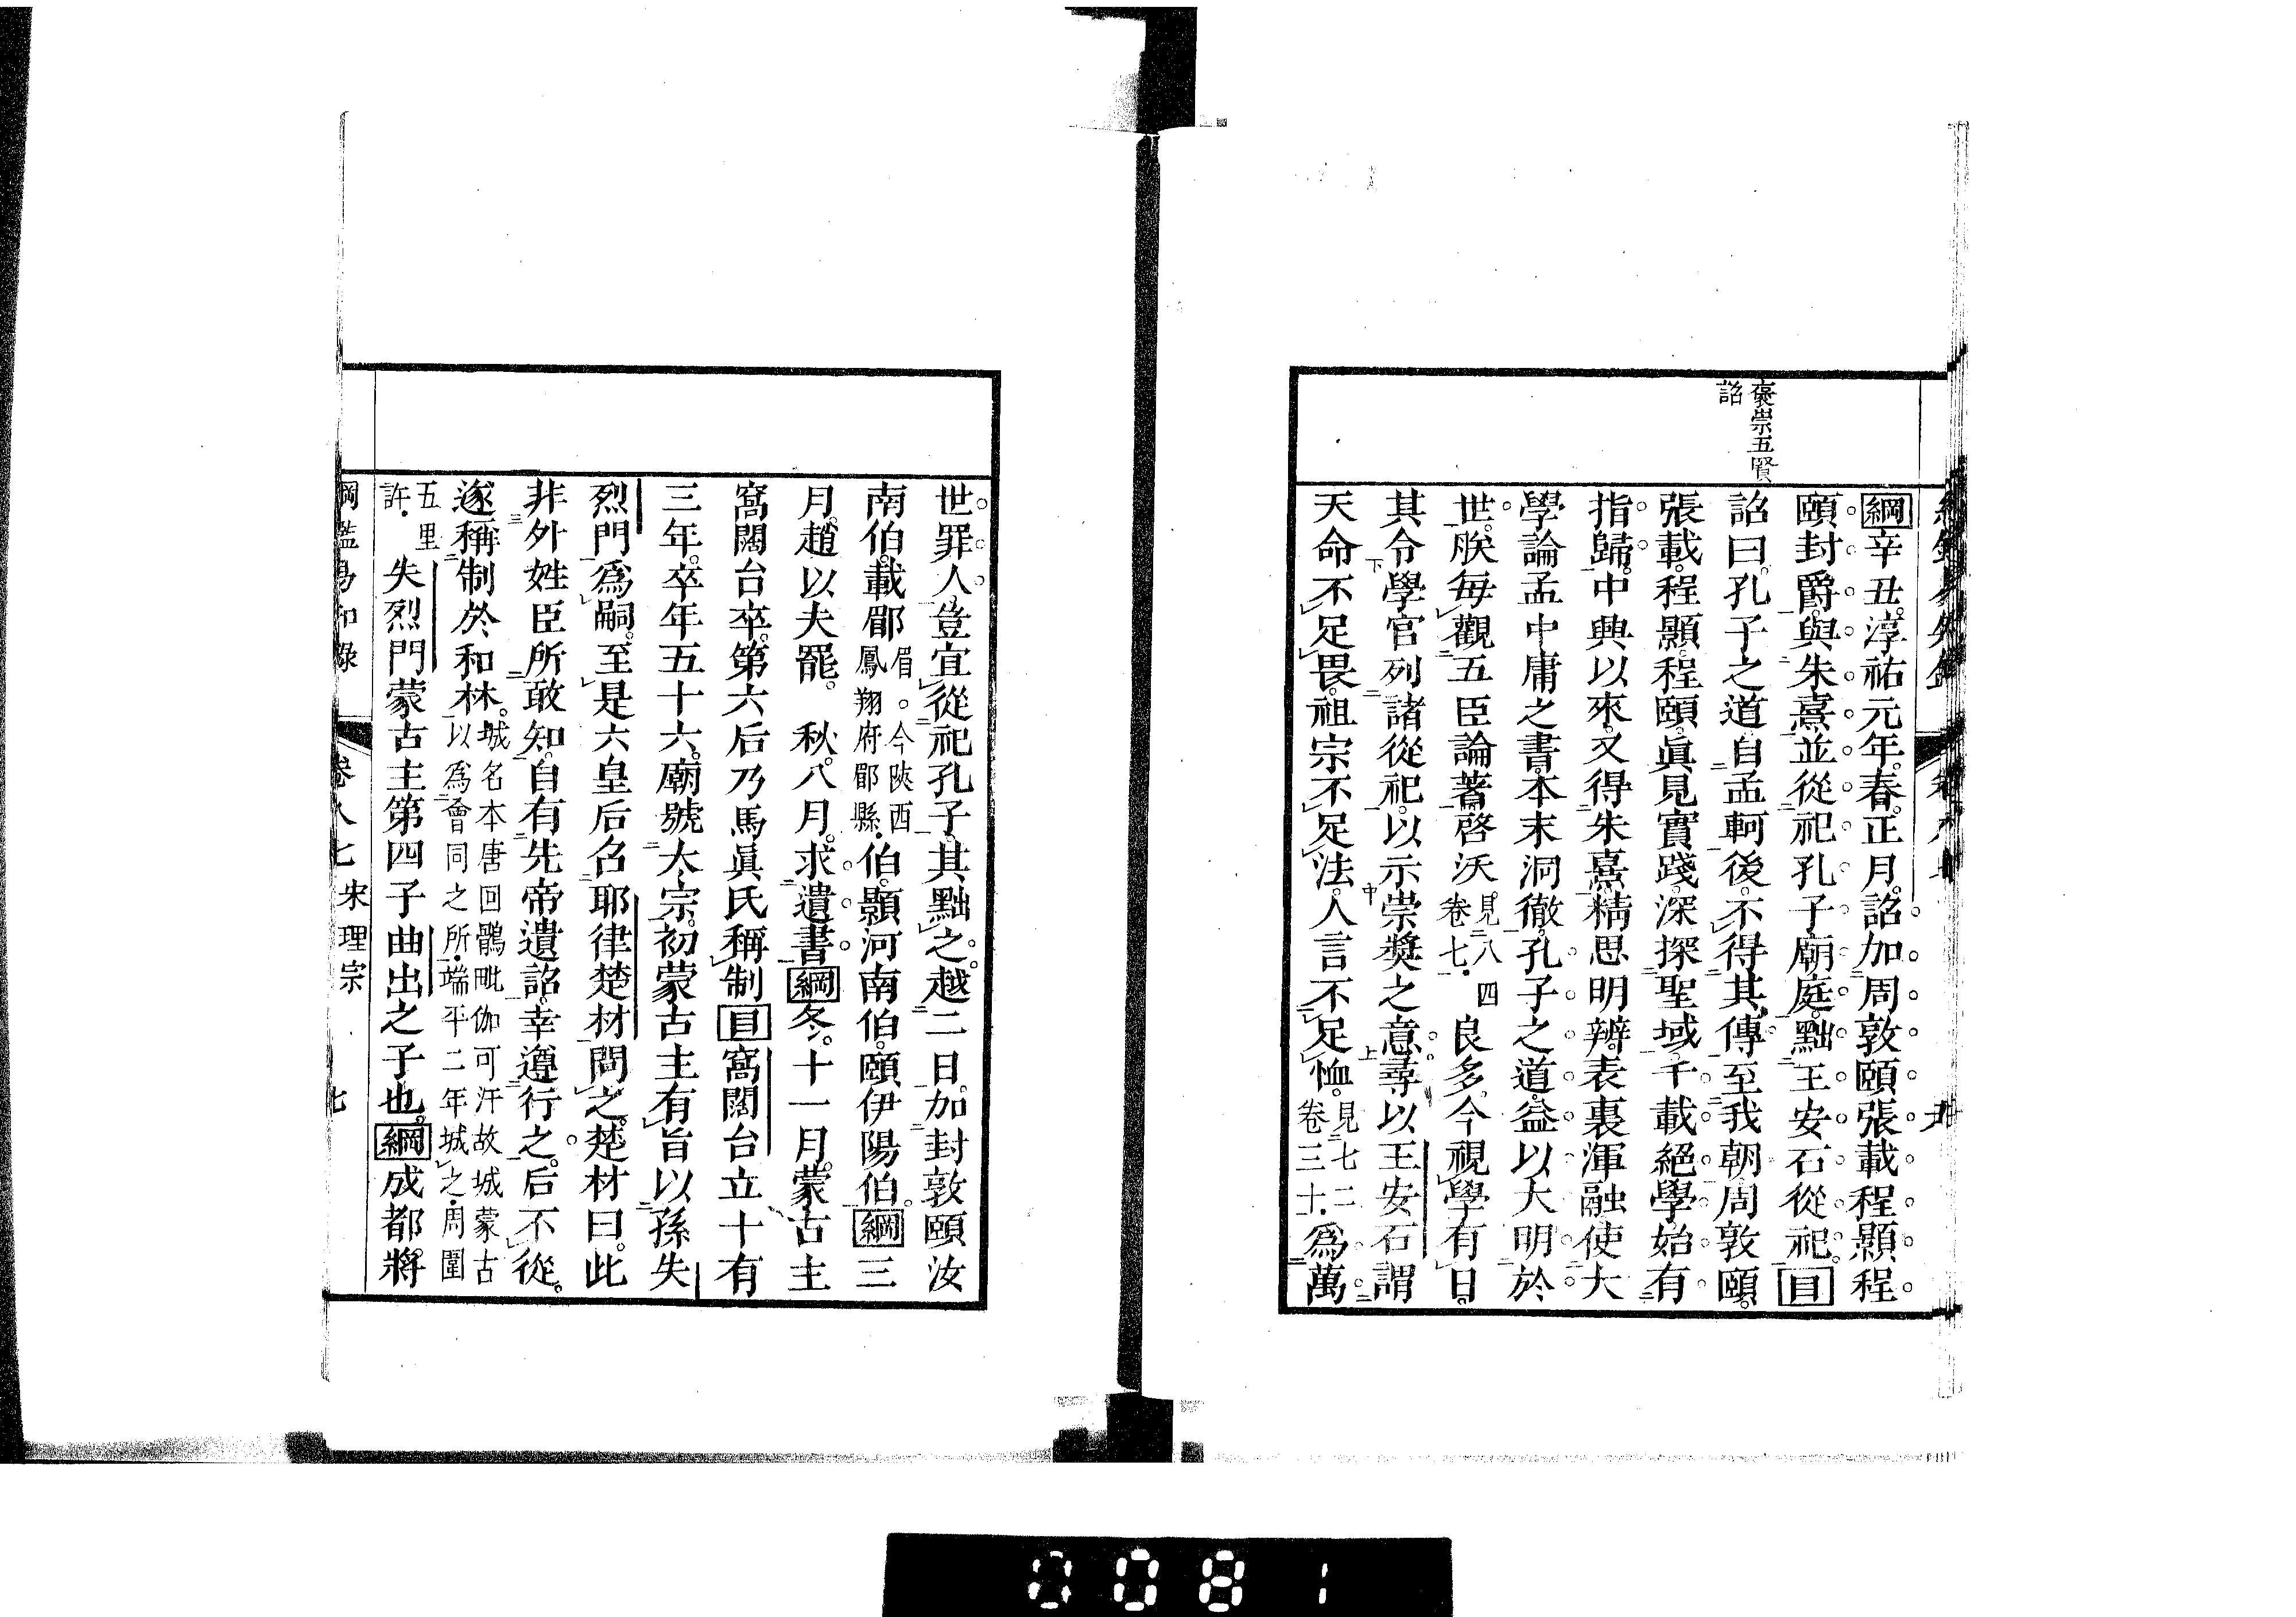 褒崇五賢
詔
綱辛丑。淳祐元年。春。正月。詔加周敦頤張載程顥程
頤封爵。與朱熹並從祀孔子廟庭。黜王安石從祀。目
詔曰。孔子之道。自孟軻後。不得其傳。至我朝周敦頤。
張載。程顥。程頤。眞見實踐。深探聖域。千載絕學。始有
指歸。中興以來。又得朱熹。精思明辨。表裏渾融。使大
學論孟中庸之書。本末洞徹。孔子之道。益以大明於
世。朕每觀五臣論著。啓沃見八四卷七。良多。今視學有日。
其令學官列諸從祀。以示崇奬之意。尋以王安石謂
天命不足畏。祖宗不足法。人言不足恤。見七二卷三十。爲萬
世罪人。豈宜從祀孔子。其黜之。越二日。加封敦頤汝
南伯。載郿眉。今陝西鳳翔府郿縣。伯。顥河南伯。頤伊陽伯。綱三
月。趙以夫罷。 秋。八月。求遺書。綱冬。十一月。蒙古主
窩闊台卒。第六后乃馬眞氏稱制目窩闊台立十有
三年。卒年五十六。廟號太宗。初蒙古主有旨以孫失
烈門爲嗣。至是六皇后召耶律楚材問之。楚材曰。此
非外姓臣所敢知。自有先帝遺詔。幸遵行之。后不從。
遂稱制於和林。城名本唐回鶻毗伽可汗故城蒙古以爲會同之所。端平二年城之。周圍
五里許。失烈門蒙古主第四子曲出之子也。綱成都將
卷八七 宋理宗 七
0081